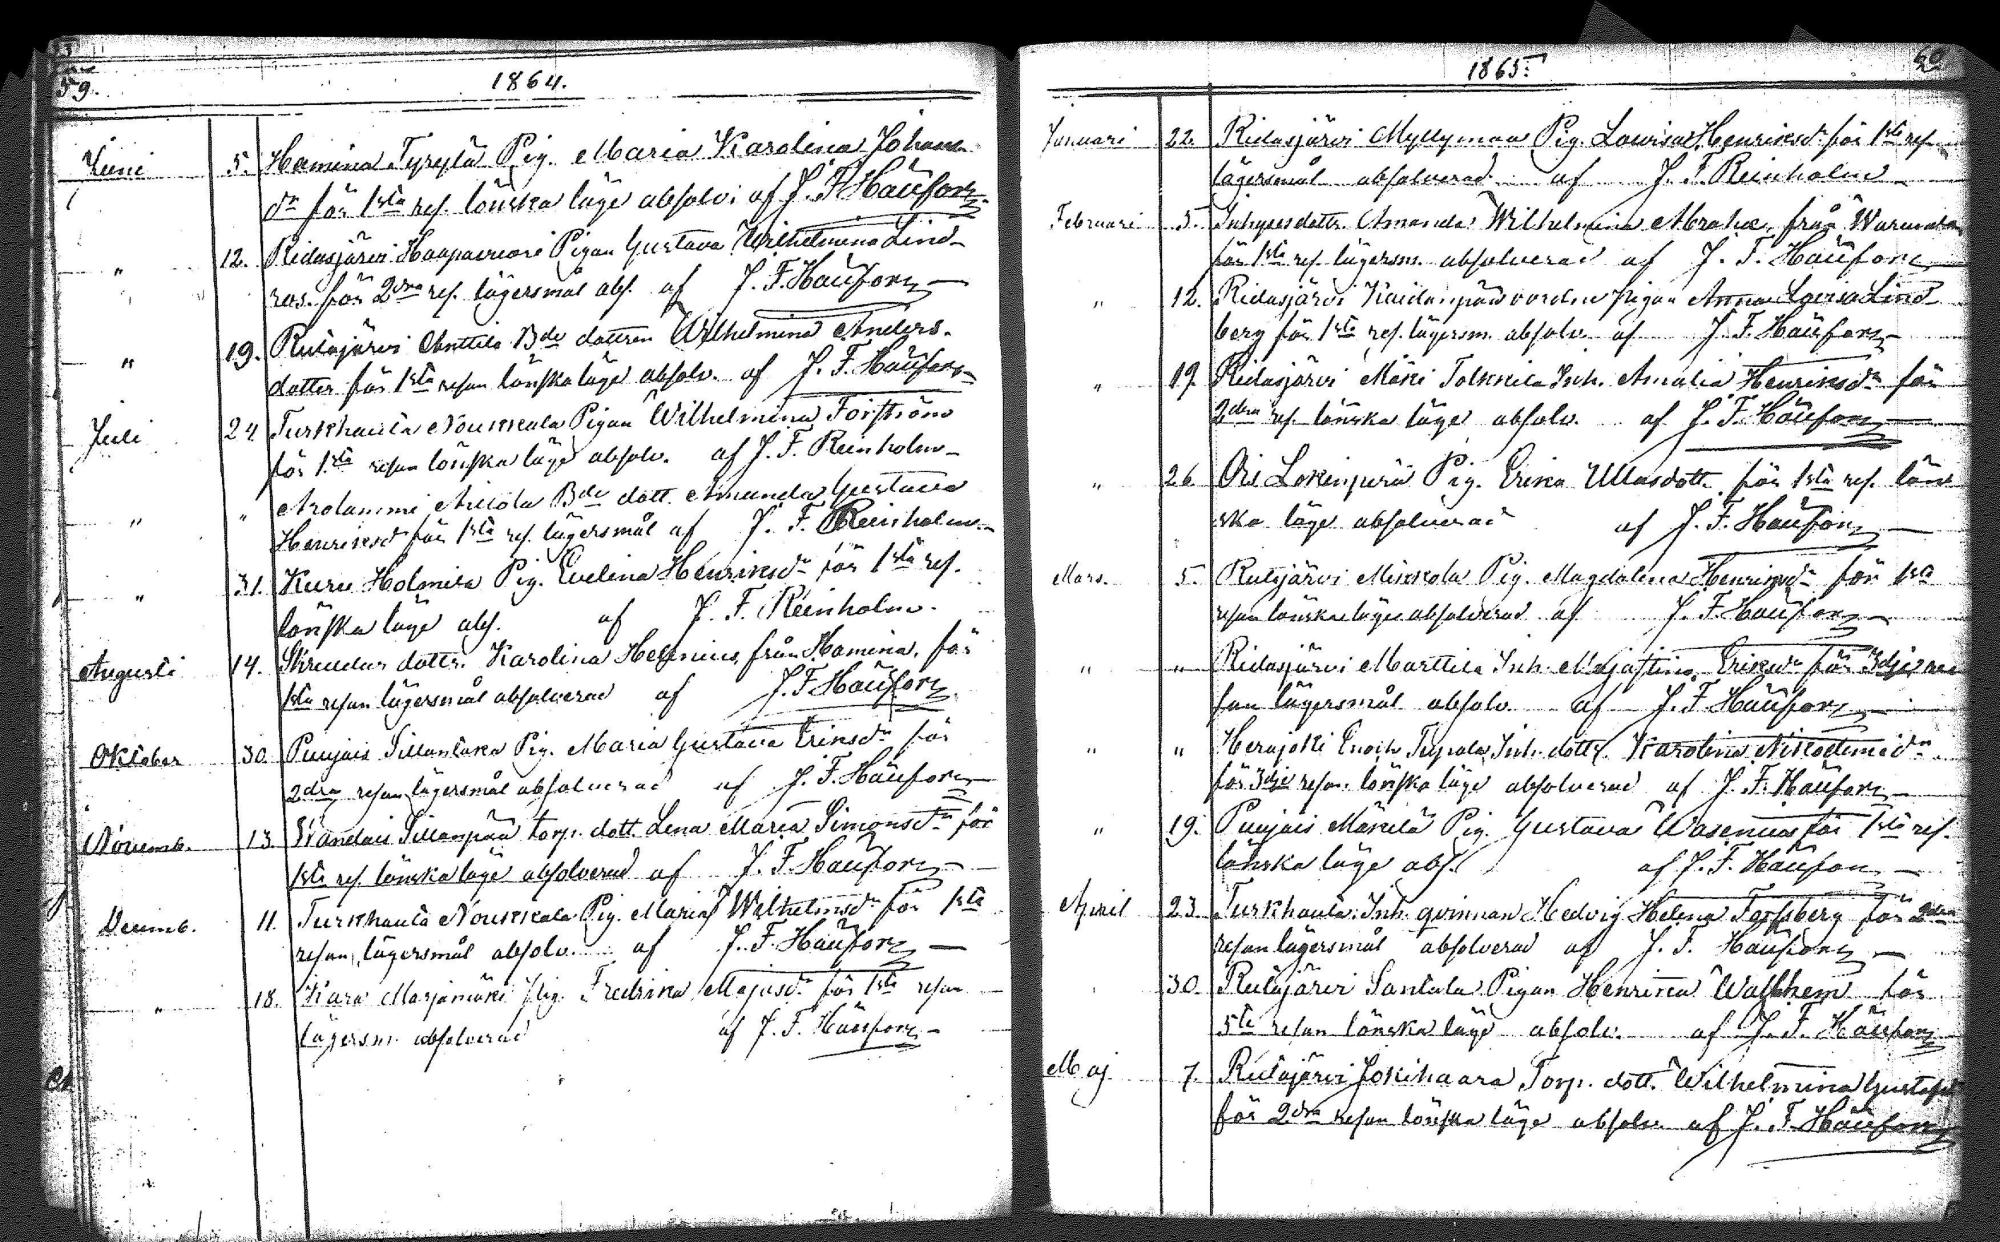 59.
1864.
Juni 5. Hamina Tyrylä Pig. Maria Karolina Johans
dr för 1sta res. lönska läge absolv: af J. F. Häufon
" 12. Ridasjärvi Haapavuori Pigan Gustava Wilhelmina Lind-
ros. för 2dra res. lägersmål abs. af J. F. Häufon
" 19. Rutajärvi Anttila Bde dottren Wilhelmina Anders-
dotter för 1sta resan lönska läge absolv. af J. F. Häufon
Juli 24 Turkhauta Noukkala Pigan Wilhelmina Forsström
för 1sta resan lönska läge absolv. af J. F. Reinholm
" " Arolammi Bde dott. Amanda Gustava
Henriksdr för 1sta res. lägersmål af J. F. Reinholm
" 31. Kuru Holmila Pig. Evelina Henriksdr för 1sta res.
lönska läge abs. af J. F. Reinholm.
Augusti 14. Skreddar dottr. Karolina Helenius från Hamina, för
1sta resan lägersmål absolverad af J. F. Häufon
Oktober 30. Puujais Sillanlaka Pig. Maria Gustava Eriksdr för
2dra resan lägersmål absolverad af J. F. Häufon
Novemb. 13. Wandais Sillanpää torp. dott. Lena Maria Simonsdr för
1sta res. lönska läge absolverad af J. F. Häufon
Decemb. 11. Turkhauta Noukkala Pig. Maria Wilhelmsdr för 1sta
resan lägersmål absolv. af J. F. Häufon
" 18. Kara Marjamäki Pig. Fredrika Majasdr för 1sta resan
lägersm. absolverad af J. F. Häufon
1865.
60
Januari 22. Ridasjärvi Myllymaa Pig. Lovisa Henriksdr för 1sta res.
lägersmål absolverad af J. F. Reinholm
Februari 5. Inhysesdottr. Amanda Wilhelmina Abrahx. från
för 1sta res. lägersm. absolverad af J. F. Häufon
" 12. Ridasjärvi Pigan Anna Lovisa Lind
berg för 1sta res. lägersm. absolv. af J. F. Häufon
" 19. Ridasjärvi Mäki Tolkkila Inh. Amalia Henriksdr för
2dra res. lönska läge absolv. af J. F. Häufon
" 26. Ois Lokinperä Pig. Erika Ullasdottr för 1sta res. löns
ska läge absolverad af J. F. Häufon
Mars. 5. Rutajärvi Mikkola Pig. Magdalena Henriksdr för 1sta
resan lönska läge absolverad af J. F. Häufon
" " Ridasjärvi Marttila Inh. Majastina Eriksdr för 3dje re
san lägersmål absolv. af J. F. Häufon
" " Herajoki Enoih Inh. dottr. Karolina Nikodemidr
för 3dje resan lönska läge absolverad af J. F. Häufon
" 19. Puujais Mäkilä Pig. Gustava Wasenius för 1sta res.
lönska läge abs. af J. F. Häufon
April 23. Turkhauta Inh. qvinnan Hedvig Helena Forssberg för 2dra
resan lägersmål absolverad af J. F. Häufon
30. Rutajärvi Santala Pigan Henrika Wallhem för
5te resan lönska läge absolv. af J. F. Häufon
Maj 7. Rutajärvi Jokihaara Torp. dott. Wilhelmina Gustafsd
för 2dra resan lönska läge absolv. af J. F. Häufon